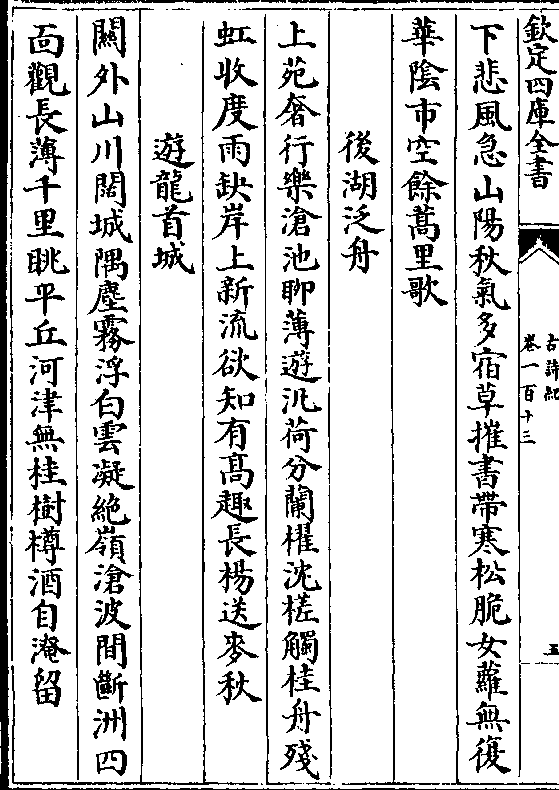 欽定四庫全書
古詩紀
卷一百十三
五
下悲風急山陽秋氣多宿草摧書帶寒松脆女蘿無復
華陰市空餘蒿里歌
後湖泛舟
上苑奢行樂滄池聊薄遊汎荷分蘭櫂沈槎觸桂舟殘
虹收度雨缺岸上新流欲知有髙趣長楊送麥秋
遊龍首城
闗外山川闊城隅塵霧浮白雲凝絶嶺滄波間斷洲四
面觀長薄千里眺平丘河津無桂樹樽酒自淹留